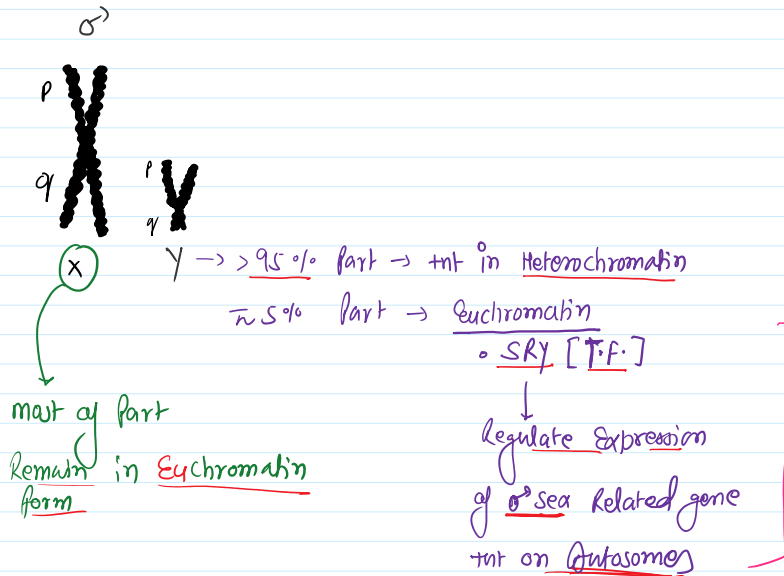 ♂
p
q
p
q
X
Y → >95% Part → +nt in Heterochromatin
≈ 5% Part → Euchromatin
• SRY [T.F.]
↓
Regulate Expression
of ♂ sex Related gene
+nt on Autosomes
most of Part
Remain in Euchromatin
form